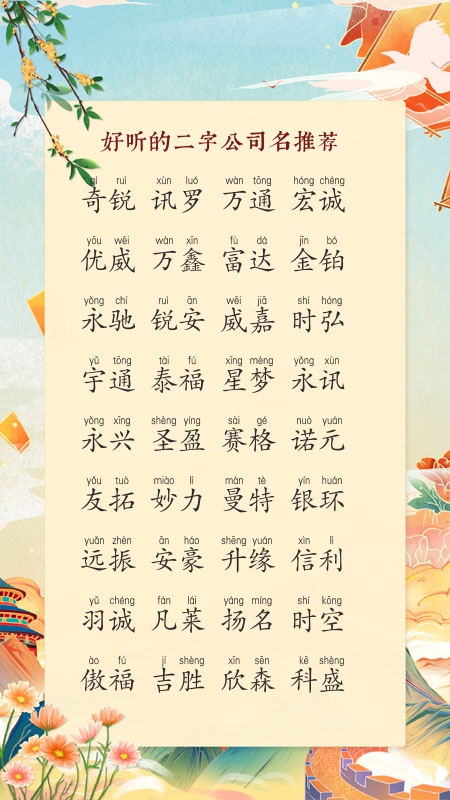 好听的二字公司名推荐
qí ruì xùn luó wàn tōng hóng chéng
奇锐 讯罗 万通 宏诚
yōu wēi wàn xīn fù dá jīn bó
优威 万鑫 富达 金铂
yǒng chí ruì ān wēi jiā shí hóng
永驰 锐安 威嘉 时弘
yǔ tōng tài fú xīng mèng yǒng xùn
宇通 泰福 星梦 永讯
yǒng xīng shèng yíng sài gé nuò yuán
永兴 圣盈 赛格 诺元
yǒu tuò miào lì màn tè yín huán
友拓 妙力 曼特 银环
yuǎn zhèn ān háo shēng yuán xìn lì
远振 安豪 升缘 信利
yǔ chéng fán lái yáng míng shí kōng
羽诚 凡莱 扬名 时空
ào fú jí shèng xīn sēn kē shèng
傲福 吉胜 欣森 科盛